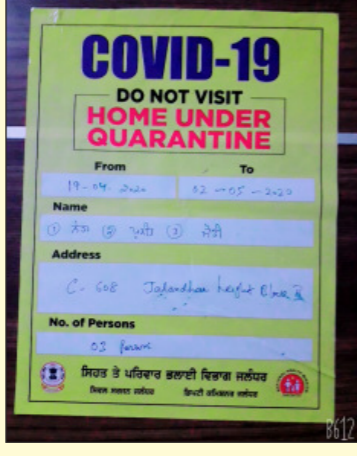 COVID-19
DO NOT VISIT
HOME UNDER
QUARANTINE
From To
19-04-2020 02-05-2020
Name
① ② ③
Address
C-608 Jalandhar height Block
No. of Persons
03 Person
ਸਿਹਤ ਤੇ ਪਰਿਵਾਰ ਭਲਾਈ ਵਿਭਾਗ ਜਲੰਧਰ
ਸਿਵਲ ਸਰਜਨ ਜਲੰਧਰ ਡਿਪਟੀ ਕਮਿਸ਼ਨਰ ਜਲੰਧਰ
B612